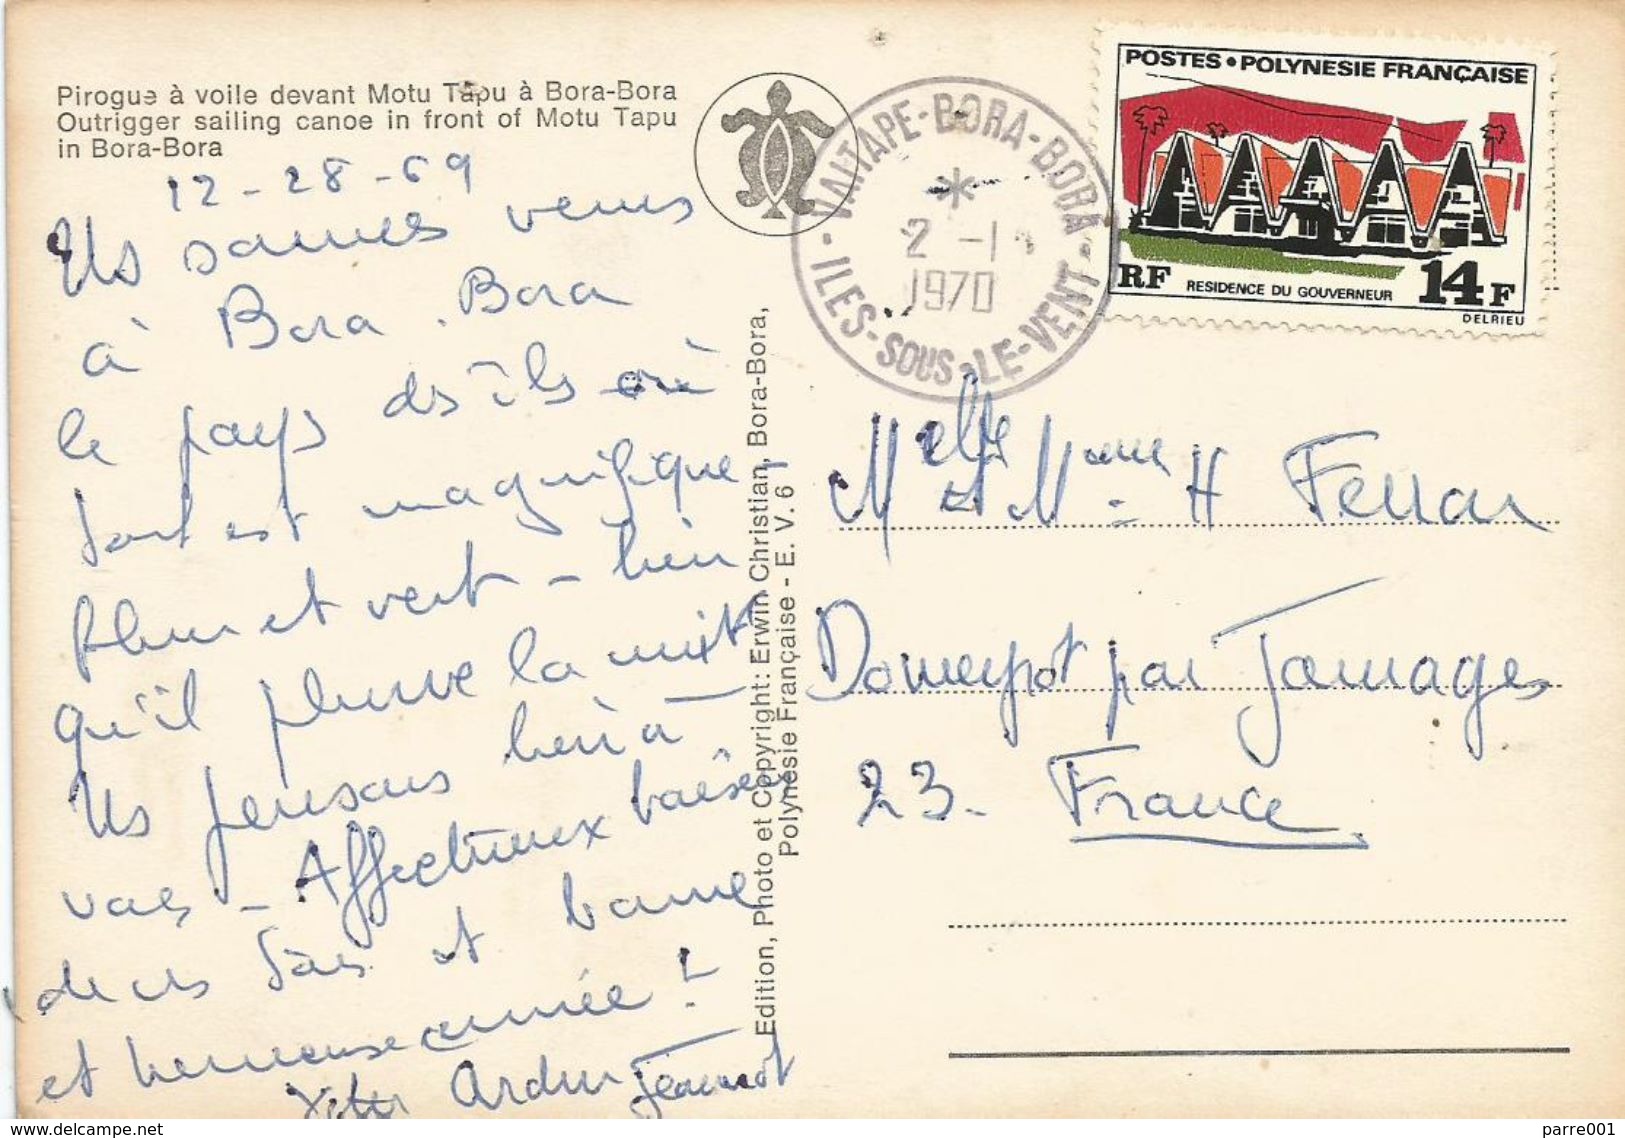 Pirogue à voile devant Motu Tapu à Bora-Bora
Outrigger sailing canoe in front of Motu Tapu
in Bora-Bora
12-28-69
Ns sommes venus
à Bora. Bora
le pays des îles où
tout est magnifique
fleuri et vert - bien
qu'il pleuve la nuit
Ns pensons bien à
vous - Affectueux baisers
de ns et bonne
et heureuse année !
Jeannot
Edition, Photo et Copyright: Erwin Christian, Bora-Bora,
Polynésie Française - E. V. 6
VAITAPE-BORA-BORA
2 -1
1970
ILES-SOUS-LE-VENT
POSTES • POLYNESIE FRANÇAISE
RF RESIDENCE DU GOUVERNEUR 14F
DELRIEU
Melle et Mme H Ferrar
Domeyrot par Jarnages
23 - France
www.delcampe.net
parre001